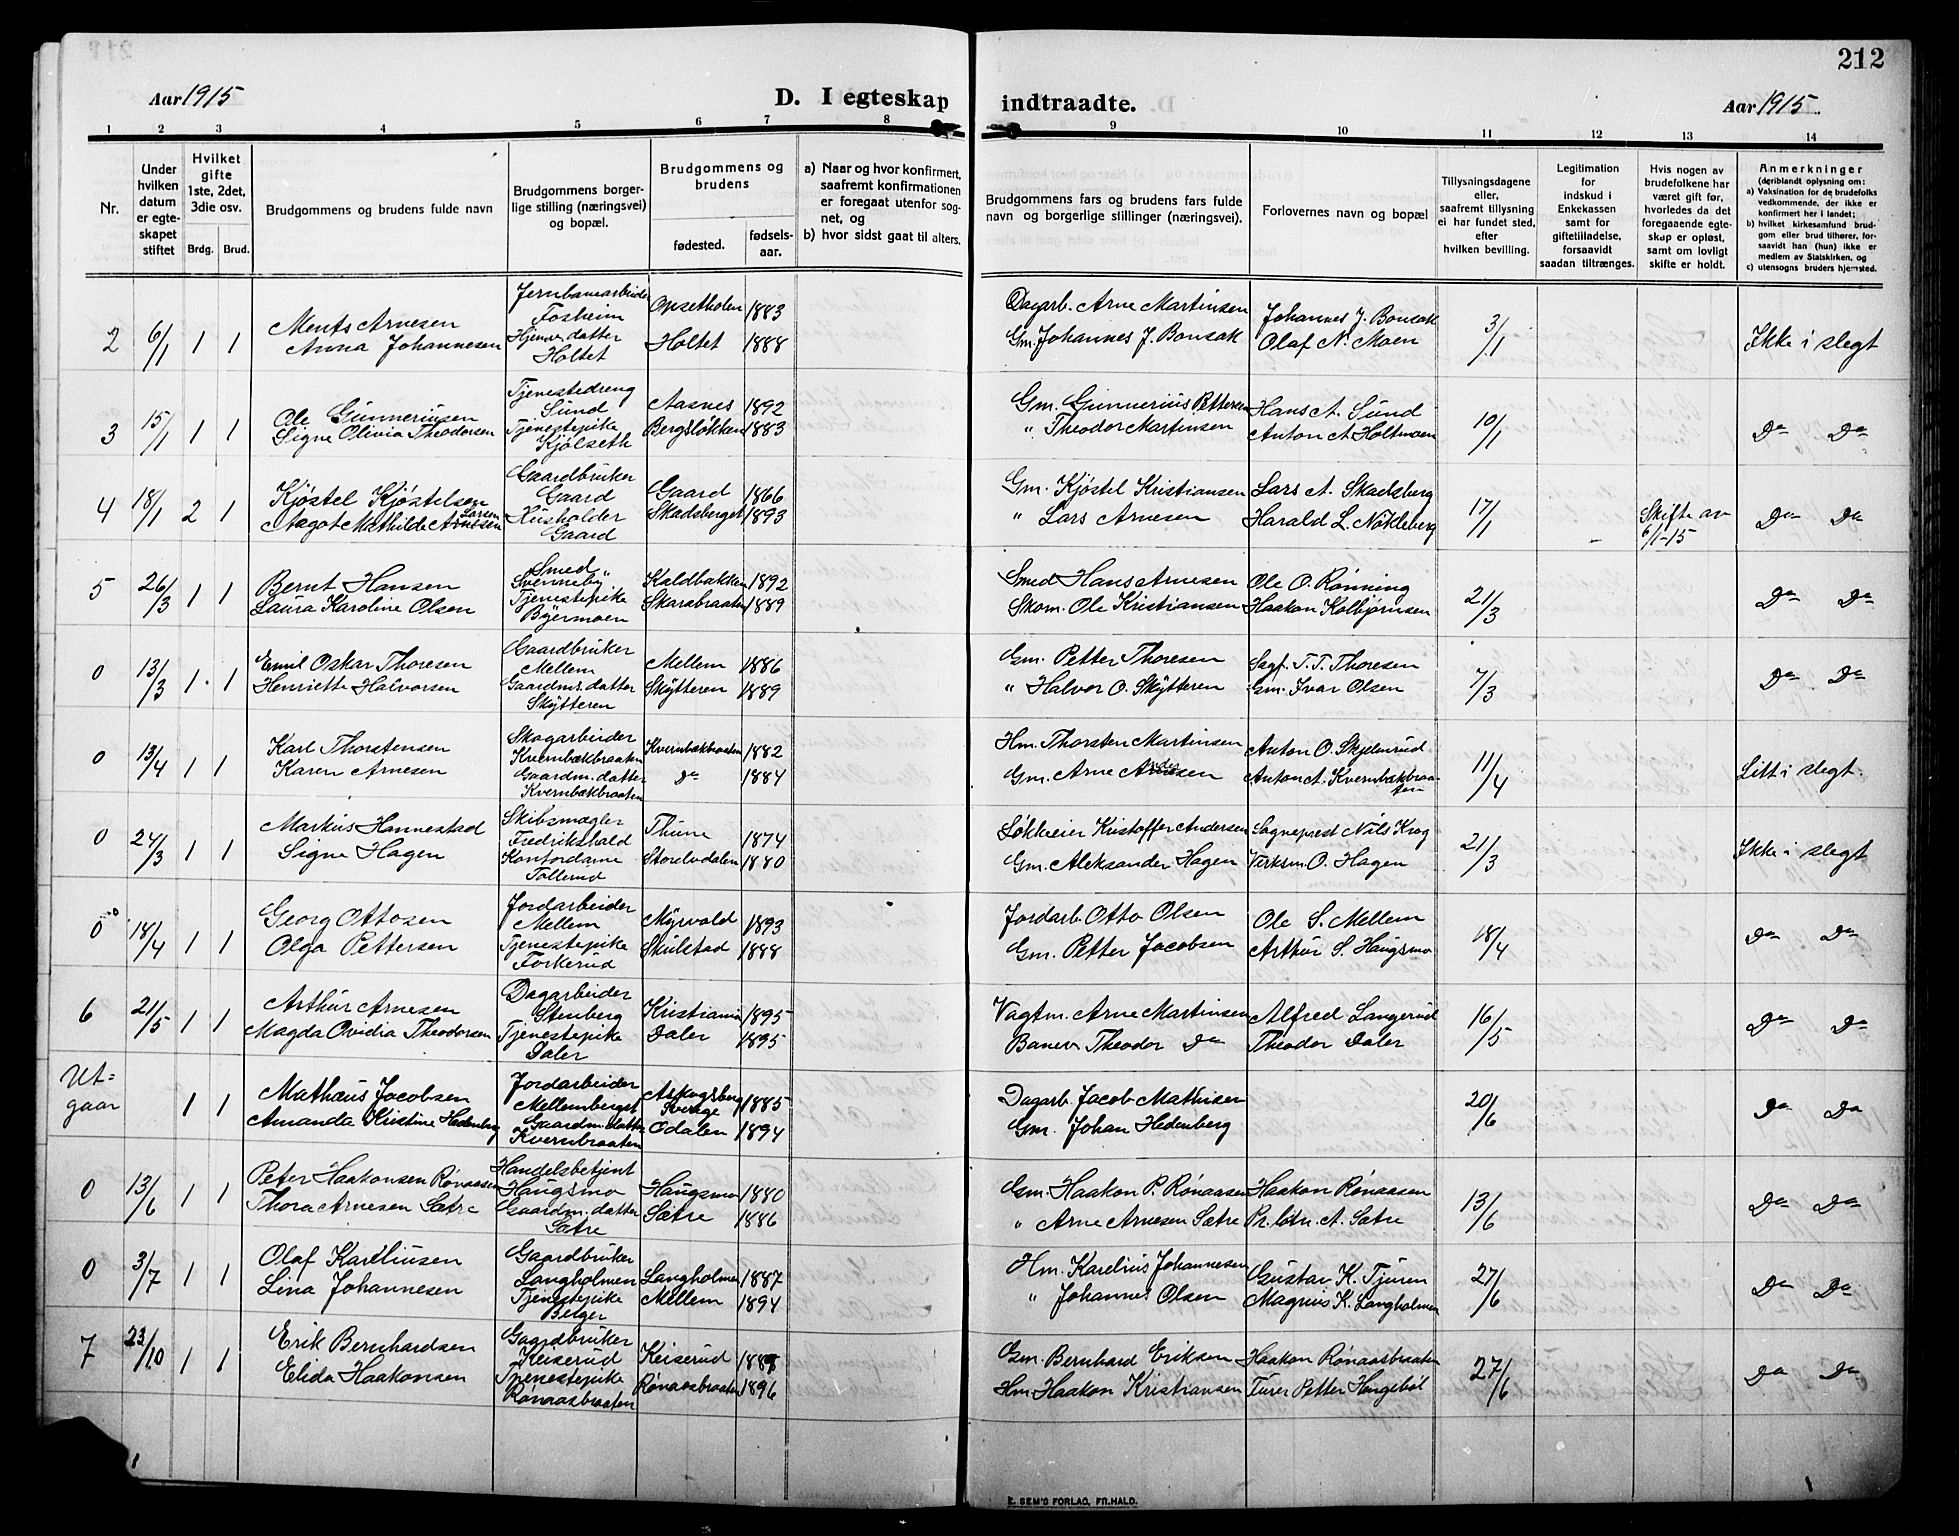 212
Aar 1915
D. I egteskap indtraadte.
Aar 1915.
1 2 3 4 5 6 7 8 9 10 11 12 13 14
Nr.
Under hvilken datum er egteskapet stiftet
Hvilket gifte 1ste, 2det, 3die osv.
Brdg. Brud.
Brudgommens og brudens fulde navn
Brudgommens borgerlige stilling (næringsvei) og bopæl.
Brudgommens og brudens
fødested. fødselsaar.
a) Naar og hvor konfirmert, saafremt konfirmationen er foregaat utenfor sognet, og
b) hvor sidst gaat til alters.
Brudgommens fars og brudens fars fulde navn og borgerlige stillinger (næringsvei).
Forlovernes navn og bopæl
Tillysningsdagene eller, saafremt tillysning ei har fundet sted, efter hvilken bevilling.
Legitimation for indskud i Enkekassen samt for giftetilladelse, forsaavidt saadan tiltrænges.
Hvis nogen av brudefolkene har været gift før, hvorledes da det foregaaende egteskap er opløst, samt om lovlig skifte er holdt.
Anmerkninger
(deriblandt oplysning om:
a) Vaksination for de brudefolks vedkommende, der ikke er konfirmert her i landet;
b) hvilket kirkesamfund brudgom eller brud tilhører, forsaavidt han (hun) ikke er medlem av Statskirken, og
c) utensogns bruders hjemsted.
2 6/1 1 1 Ments Arnesen Jernbanearbeider Fosheim Opsetholen 1883 Dagarb. Arne Martinsen Johannes J. Bonsak 3/1 Ikke i slegt
Anna Johannesen Hjemmev. datter Holtet Holtet 1888 Gm. Johannes J. Bonsak Olaf N. Moen
3 15/1 1 1 Ole Gunneriusen Tjenestedreng Sund Aasnes 1892 Gm. Gunnerius Pettersen Hans A. Sund 10/1 Do Do
Signe Olivia Theodorsen Tjenestepike Kjølseth Bergsløkken 1883 " Theodor Martinsen Anton A. Holtmoen
4 18/1 2 1 Kjøstel Kjøstelsen Gaardbruker Gaard Gaard 1866 Gm. Kjøstel Kristiansen Lars A. Skadsberg 17/1 Skifte av 6/1-15 Do Do
Aagot Mathilde Larsen Husholder Gaard Skadsberget 1893 " Lars Arnesen Harald L. Nøkleberg
5 26/3 1 1 Bernt Hansen Smed Svenneby Kaldbakken 1892 Smed Hans Arnesen Ole O. Rønning 21/3 Do Do
Laura Karoline Olsen Tjenestepike Byermoen Skarsbraaten 1889 Skom. Ole Kristiansen Haakon Kolbjørnsen
0 13/3 1 1 Emil Oskar Thoresen Gaardbruker Mellem Mellem 1886 Gm. Petter Thoresen Sagf. T. T. Thoresen 7/3 Do Do
Henriette Halvorsen Gaardm. datter Skytteren Skytteren 1889 " Halvor O. Skytteren Gm. Ivar Olsen
0 13/4 1 1 Karl Thorstensen Skogarbeider Kvernbækbraaten Kvernbækbraaten 1882 Hm. Thorsten Martinsen Anton O. Skjelnrud 11/4 Litt i slegt.
Karen Arnesen Gaardm. datter Kvernbækbraaten Do 1884 Gm. Arne Andersen Anton A. Kvernbækbraaten
0 24/3 1 1 Markus Hannestad Skibsmægler Fredrikshald Thune 1874 Løkkeier Kristoffer Andersen Sogneprest Nils Krog 21/3 Ikke i slegt
Signe Hagen Kontordame Tollerud Storelvdalen 1880 Gm. Aleksander Hagen Verksm. O. Hagen
0 18/4 1 1 Georg Ottosen Jordarbeider Mellem Myrvold 1893 Jordarb. Otto Olsen Ole S. Mellem 18/4 Do Do
Olga Pettersen Tjenestepike Forkerud Skulstad 1888 Gm. Petter Jacobsen Arthur S. Haugsmo
6 21/5 1 1 Arthur Arnesen Dagarbeider Stenberg Kristiania 1895 Vagtm. Arne Martinsen Alfred Langerud 16/5 Do Do
Magda Ovidia Theodorsen Tjenestepike Daler Daler 1895 Banev. Theodor Do Theodor Daler
Utgaar 1 1 Mathæus Jacobsen Jordarbeider Mellemberget Askogsberg Sverige 1885 Dagarb. Jacob Mathisen 20/6 Do Do
Amanda Kristine Hedenberg Gaardm. datter Kvernbraaten Odalen 1894 Gm. Johan Hedenberg
0 13/6 1 1 Peter Haakonsen Rønaasen Handelsbetjent Haugsmo Haugsmo 1880 Gm. Haakon P. Rønaasen Haakon Rønaasen 13/6 Do Do
Thora Arnesen Sætre Gaardm. datter Sætre Sætre 1886 " Arne Arnesen Sætre Pr. løtn. A. Sætre
0 3/7 1 1 Olaf Kareliusen Gaardbruker Langholmen Langholmen 1887 Hm. Karelius Johannesen Gustav K. Tjuren 27/6 Do Do
Lina Johannesen Tjenestepike Belger Mellem 1894 " Johannes Olsen Magnus K. Langholmen
7 23/10 1 1 Erik Bernhardsen Gaardbruker Keiserud Keiserud 1887 Gm. Bernhard Eriksen Haakon Rønaasbraaten 27/6 Do Do
Elida Haakonsen Tjenestepike Rønaasbraaten Rønaasbraaten 1896 Hm. Haakon Kristiansen Petter Haugebøl
E. SEM'S FORLAG, FR.HALD.